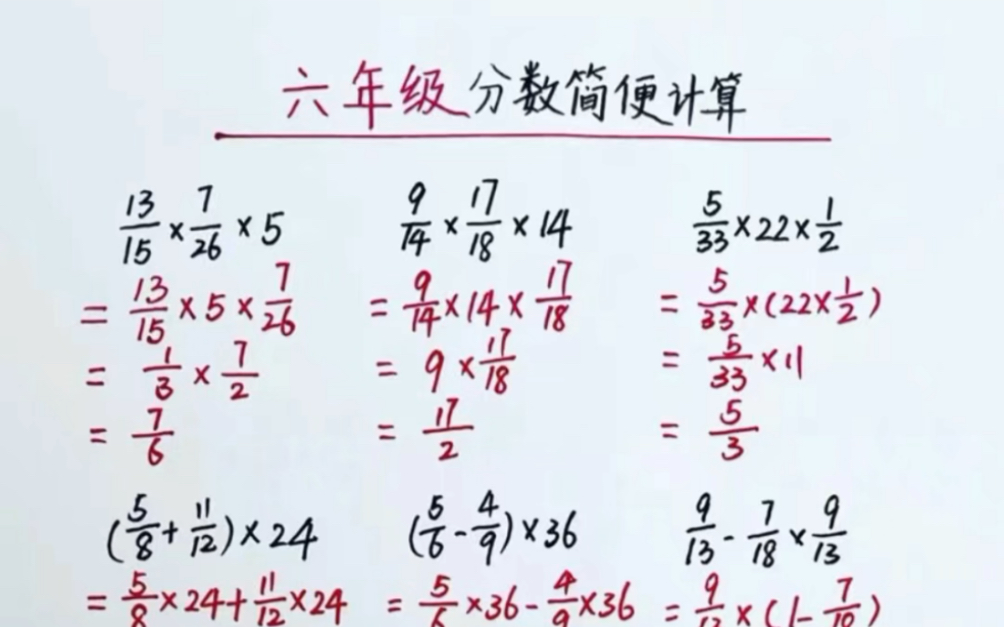 六年级分数简便计算
13/15 × 7/26 × 5
= 13/15 × 5 × 7/26
= 1/3 × 7/2
= 7/6
9/14 × 17/18 × 14
= 9/14 × 14 × 17/18
= 9 × 17/18
= 17/2
5/33 × 22 × 1/2
= 5/33 × (22 × 1/2)
= 5/33 × 11
= 5/3
(5/8 + 11/12) × 24
= 5/8 × 24 + 11/12 × 24
(5/6 - 4/9) × 36
= 5/6 × 36 - 4/9 × 36
9/13 - 7/18 × 9/13
= 9/13 × (1 - 7/18)